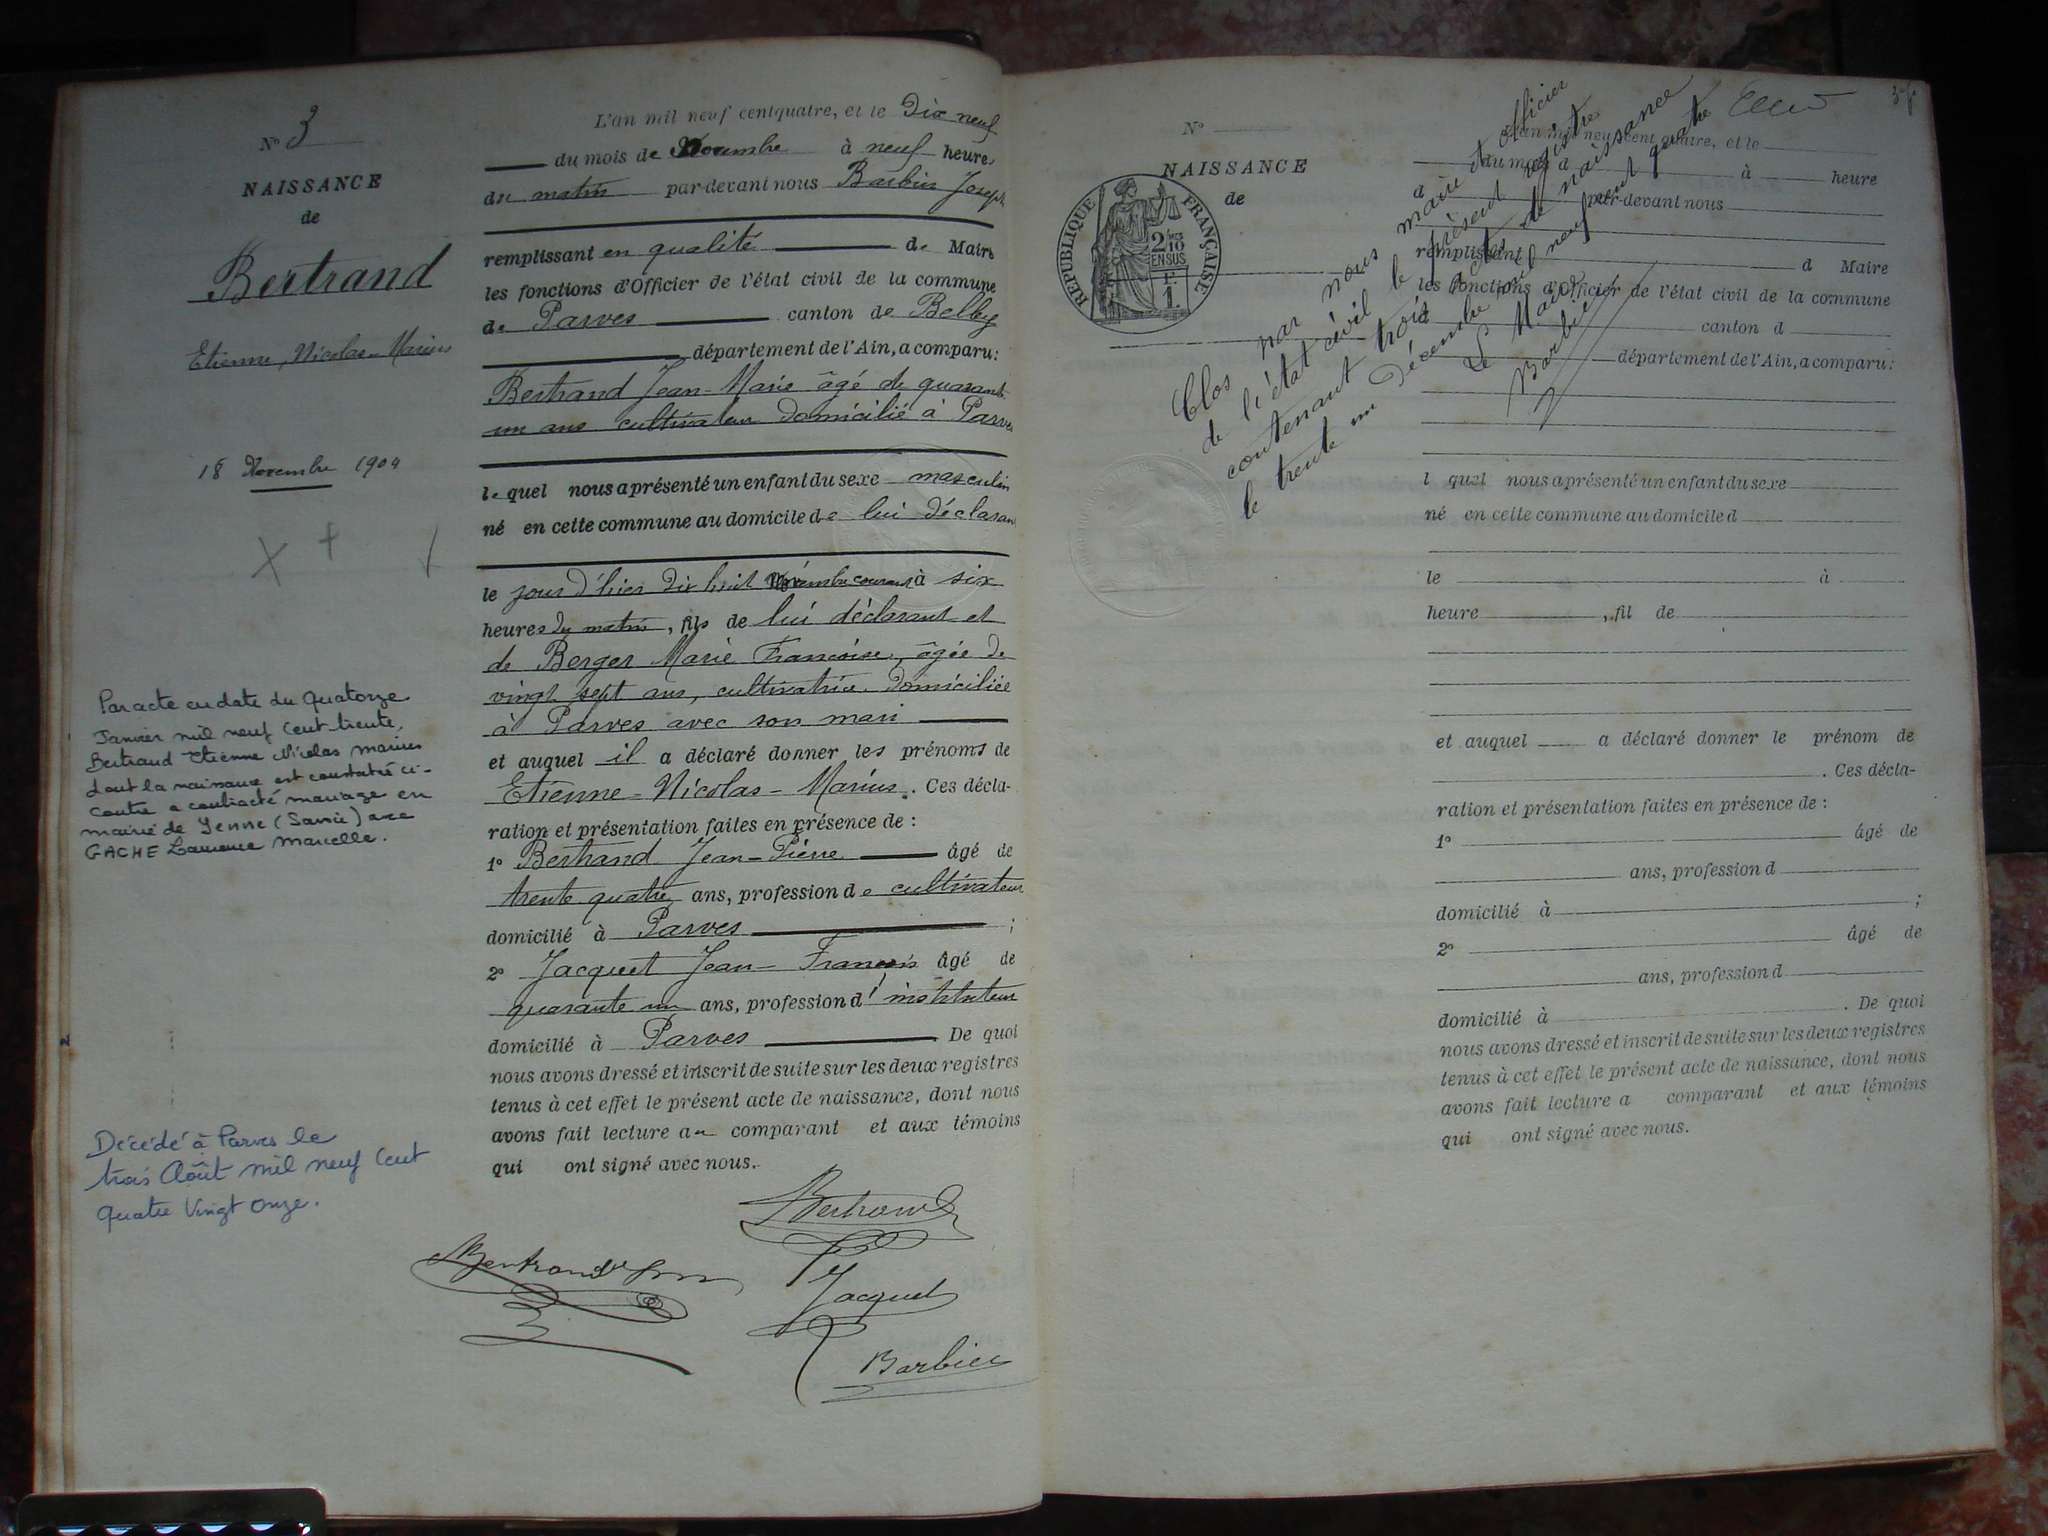 N° 3
NAISSANCE
de
Bertrand
Etienne, Nicolas-Marius
18 Novembre 1904
Par acte en date du quatorze
Janvier mil neuf cent trente,
Bertrand Etienne Nicolas Marius
dont la naissance est constatée ci-
contre a contracté mariage en
mairie de Yenne (Savoie) avec
GACHE Laurence Marcelle.
Décédé à Parves le
trois Août mil neuf cent
quatre vingt onze.
L'an mil neuf cent quatre, et le Dix neuf
du mois de Novembre à neuf heures
du matin par-devant nous Barbier Joseph
remplissant en qualité de Maire
les fonctions d'Officier de l'état civil de la commune
de Parves canton de Belley
département de l'Ain, a comparu:
Bertrand Jean-Marie âgé de quarante
un ans cultivateur domicilié à Parves
lequel nous a présenté un enfant du sexe masculin
né en cette commune au domicile de lui déclarant
le jour d'hier dix huit Novembre courant à six
heures du matin, fils de lui déclarant et
de Berger Marie Françoise, âgée de
vingt sept ans, cultivatrice domiciliée
à Parves avec son mari
et auquel il a déclaré donner les prénoms de
Etienne-Nicolas-Marius. Ces décla-
ration et présentation faites en présence de :
1° Bertrand Jean-Pierre âgé de
trente quatre ans, profession de cultivateur
domicilié à Parves ;
2° Jacquet Jean-François âgé de
quarante un ans, profession d'instituteur
domicilié à Parves De quoi
nous avons dressé et inscrit de suite sur les deux registres
tenus à cet effet le présent acte de naissance, dont nous
avons fait lecture au comparant et aux témoins
qui ont signé avec nous.
Bertrand
Bertrand
Jacquet
Barbier
N°
NAISSANCE
de
REPUBLIQUE FRANÇAISE
2/10
EN SUS
1
Clos par nous maire et officier
de l'état civil le présent registre
contenant trois actes de naissance
le trente un Décembre mil neuf cent quatre
Le Maire
Barbier
L'an mil neuf cent quatre, et le
du mois d à heure
d par-devant nous
remplissant d Maire
les fonctions d'Officier de l'état civil de la commune
d canton d
département de l'Ain, a comparu:
l quel nous a présenté un enfant du sexe
né en cette commune au domicile d
le à
heure , fil de
et auquel a déclaré donner le prénom de
. Ces décla-
ration et présentation faites en présence de :
1° âgé de
ans, profession d
domicilié à ;
2° âgé de
ans, profession d
domicilié à . De quoi
nous avons dressé et inscrit de suite sur les deux registres
tenus à cet effet le présent acte de naissance, dont nous
avons fait lecture a comparant et aux témoins
qui ont signé avec nous.